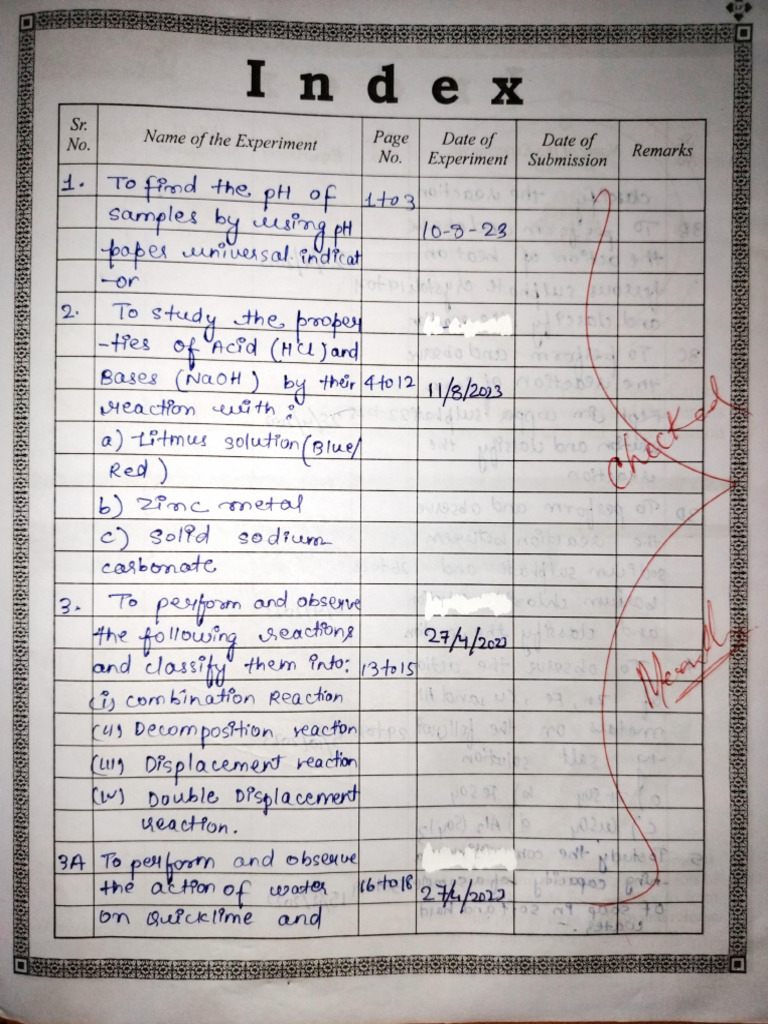 Index
Sr. No. Name of the Experiment Page No. Date of Experiment Date of Submission Remarks
1. To find the pH of 1 to 3
samples by using pH 10-8-23
paper universal indicat
-or
2. To study the proper
-ties of Acid (HCl) and
Bases (NaOH) by their 4 to 12 11/8/2023
reaction with:
a) Litmus solution (Blue/
Red)
b) Zinc metal
c) Solid sodium
carbonate
3. To perform and observe
the following reactions 27/4/2023
and classify them into: 13 to 15
(i) Combination Reaction
(ii) Decomposition reaction
(iii) Displacement reaction
(iv) Double Displacement
reaction.
3A To perform and observe
the action of water 16 to 18 27/4/2023
on Quicklime and
Checked